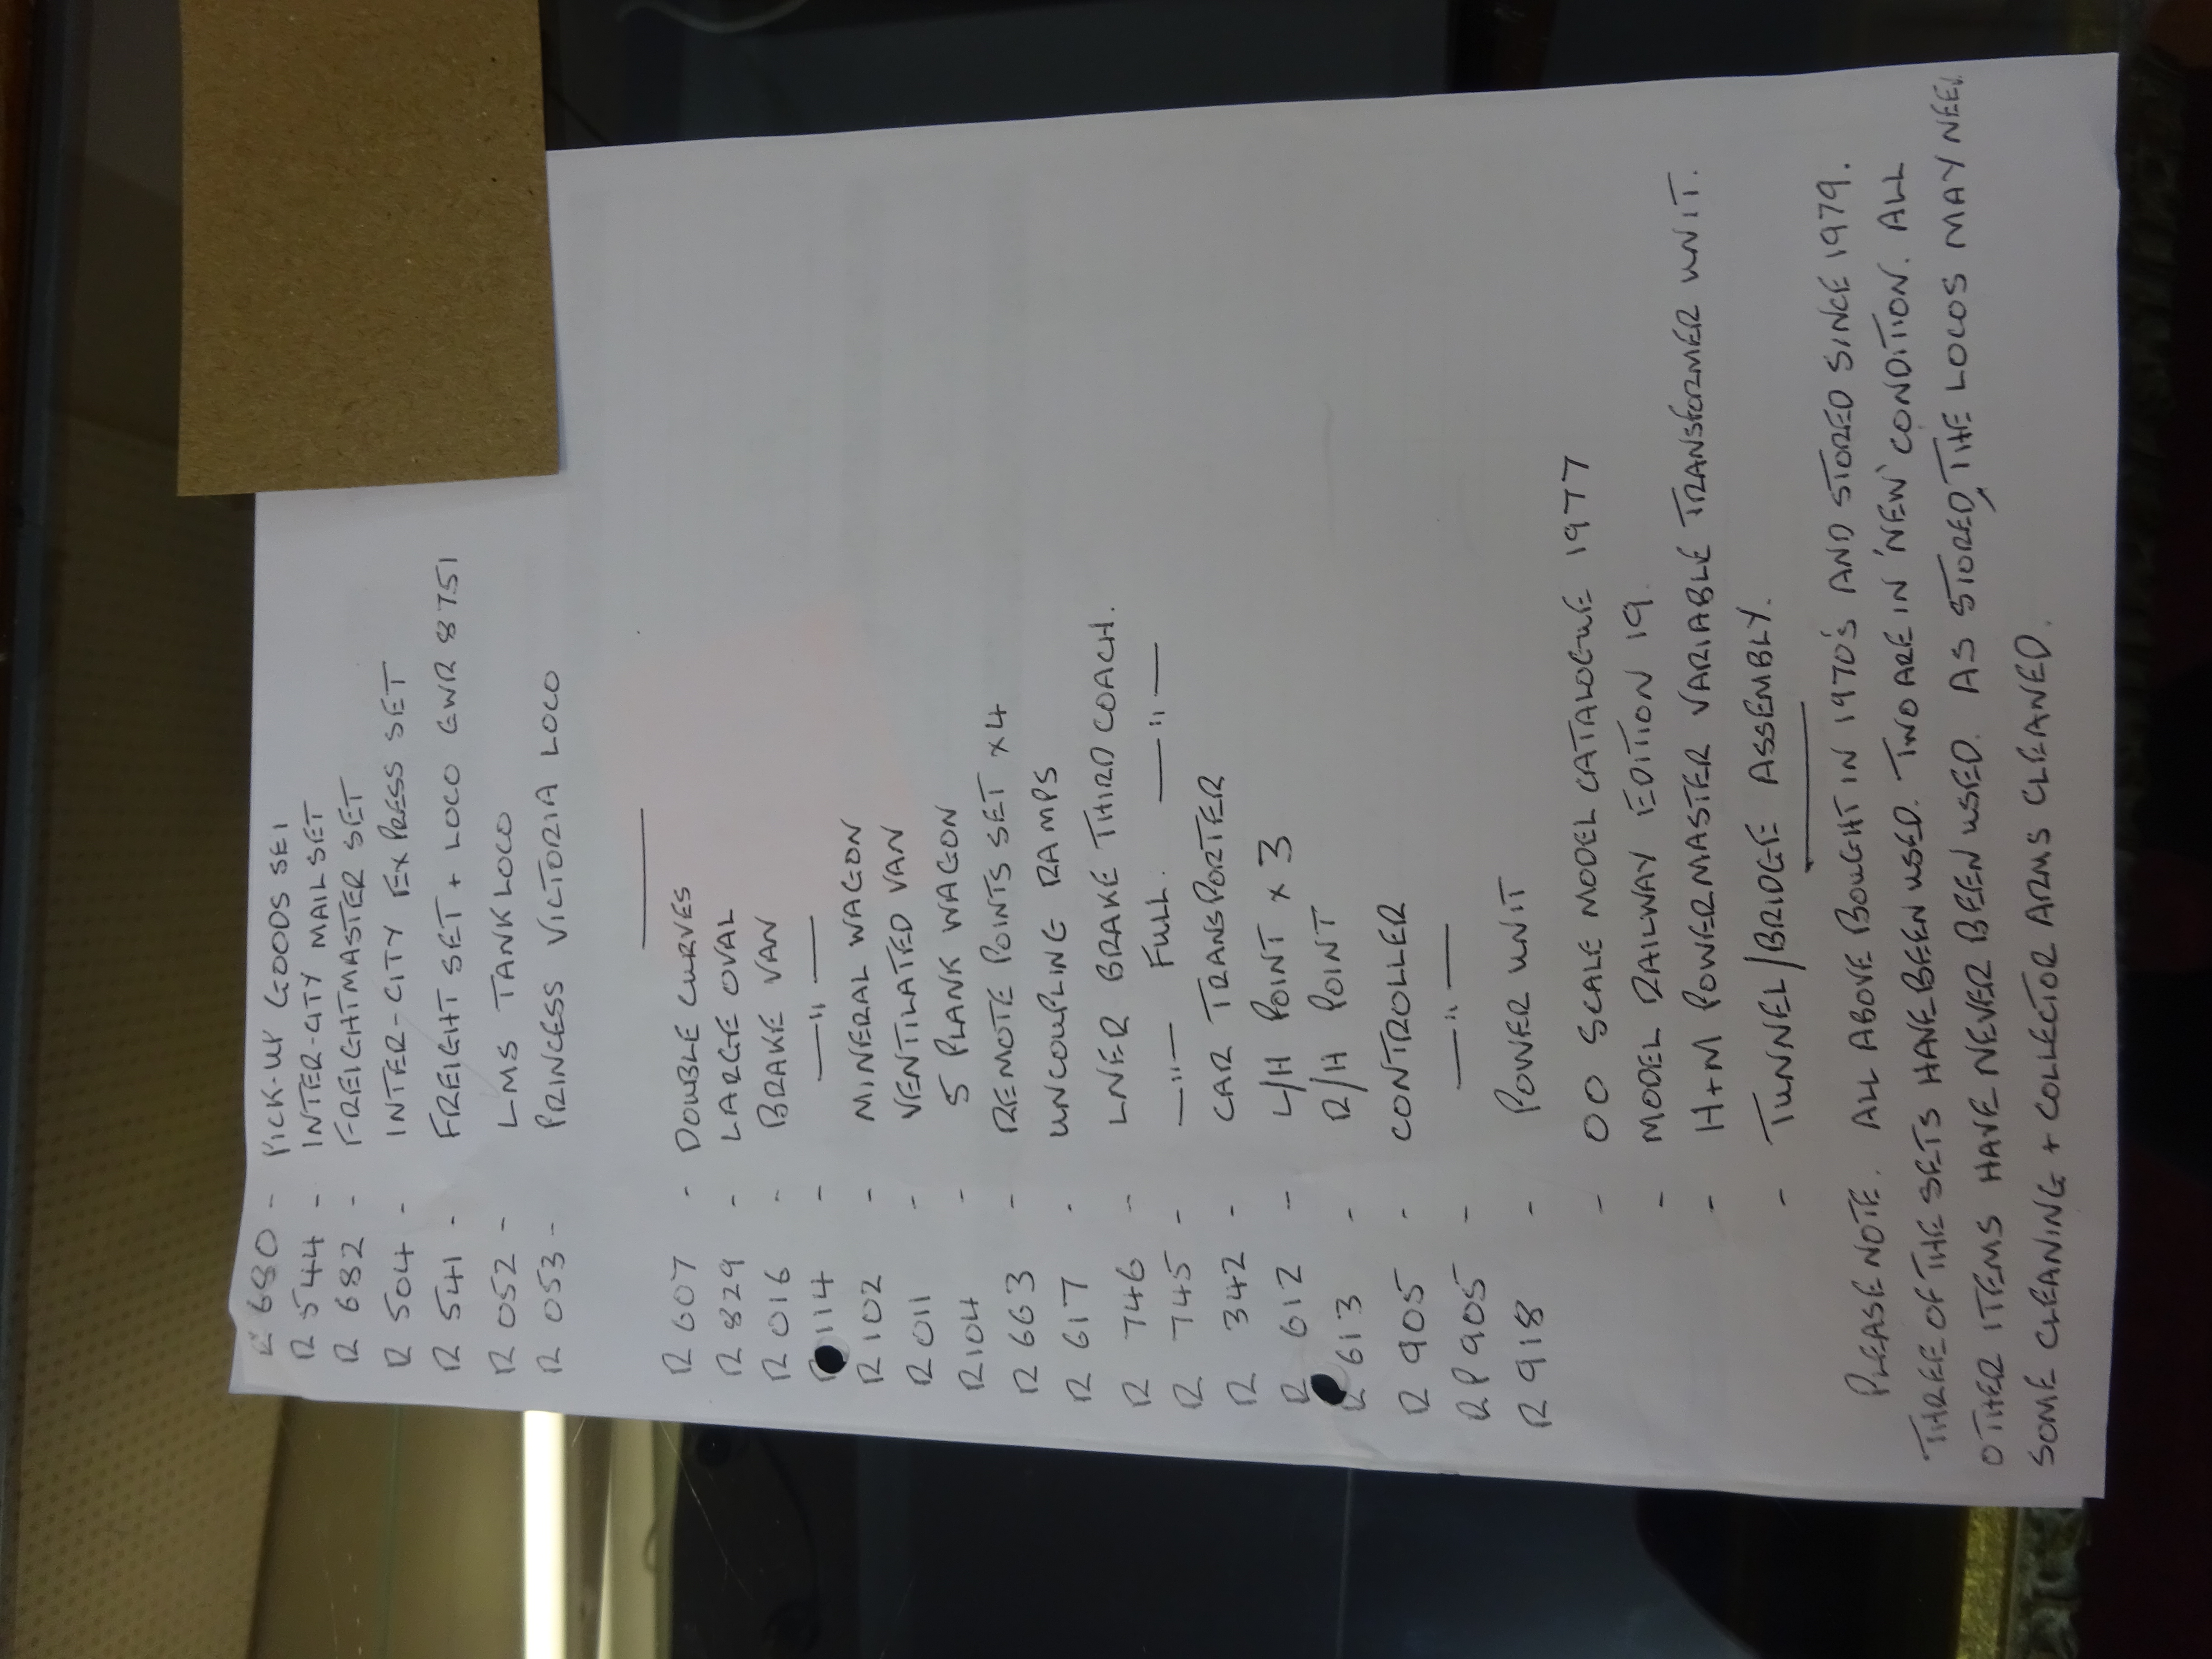 R 680 - PICK-UP GOODS SET
R 544 - INTER-CITY MAIL SET
R 682 - FREIGHTMASTER SET
R 504 - INTER-CITY EXPRESS SET
R 541 - FREIGHT SET + LOCO GWR 8751
R 052 - LMS TANK LOCO
R 053 - PRINCESS VICTORIA LOCO
R 607 - DOUBLE CURVES
R 829 - LARGE OVAL
R 016 - BRAKE VAN
R 114 - —"—
R 102 - MINERAL WAGON
R 011 - VENTILATED VAN
R 104 - 5 PLANK WAGON
R 663 - REMOTE POINTS SET x4
R 617 - UNCOUPLING RAMPS
R 746 - LNER BRAKE THIRD COACH.
R 745 - —"— FULL. —"—
R 342 - CAR TRANSPORTER
R 612 - L/H POINT x 3
R 613 - R/H POINT
R 905 - CONTROLLER
RP 905 - —"—
R 918 - POWER UNIT
- OO SCALE MODEL CATALOGUE 1977
- MODEL RAILWAY EDITION 19.
- H+M POWERMASTER VARIABLE TRANSFORMER UNIT.
- TUNNEL/BRIDGE ASSEMBLY.
PLEASE NOTE. ALL ABOVE BOUGHT IN 1970'S AND STORED SINCE 1979.
THREE OF THE SETS HAVE BEEN USED. TWO ARE IN 'NEW' CONDITION. ALL
OTHER ITEMS HAVE NEVER BEEN USED. AS STORED, THE LOCOS MAY NEED
SOME CLEANING + COLLECTOR ARMS CLEANED.